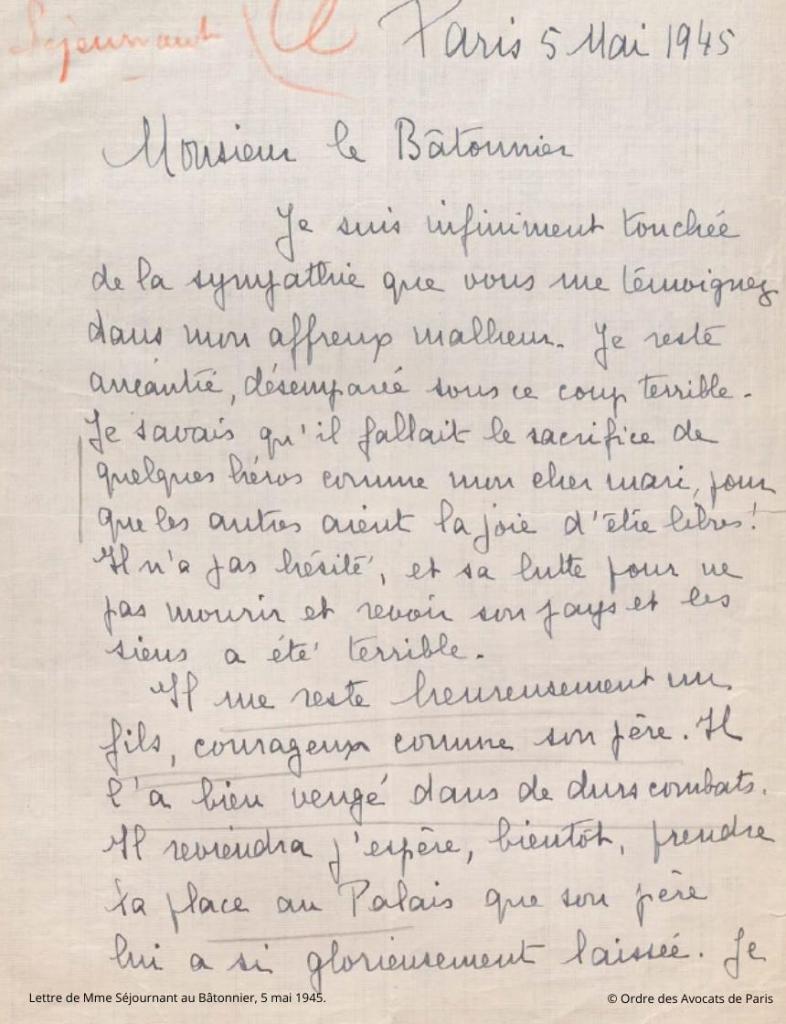 Séjournant
Paris 5 Mai 1945
Monsieur le Bâtonnier
Je suis infiniment touchée
de la sympathie que vous me témoignez
dans mon affreux malheur. Je reste
anéantie, désemparée sous ce coup terrible.
Je savais qu'il fallait le sacrifice de
quelques héros comme mon cher mari, pour
que les autres aient la joie d'être libres!
Il n'a pas hésité, et sa lutte pour ne
pas mourir et revoir son pays et les
siens a été terrible.
Il me reste heureusement un
fils, courageux comme son père. Il
l'a bien vengé dans de durs combats.
Il reviendra j'espère, bientôt, prendre
la place au Palais que son père
lui a si glorieusement laissée. Je
Lettre de Mme Séjournant au Bâtonnier, 5 mai 1945.
© Ordre des Avocats de Paris